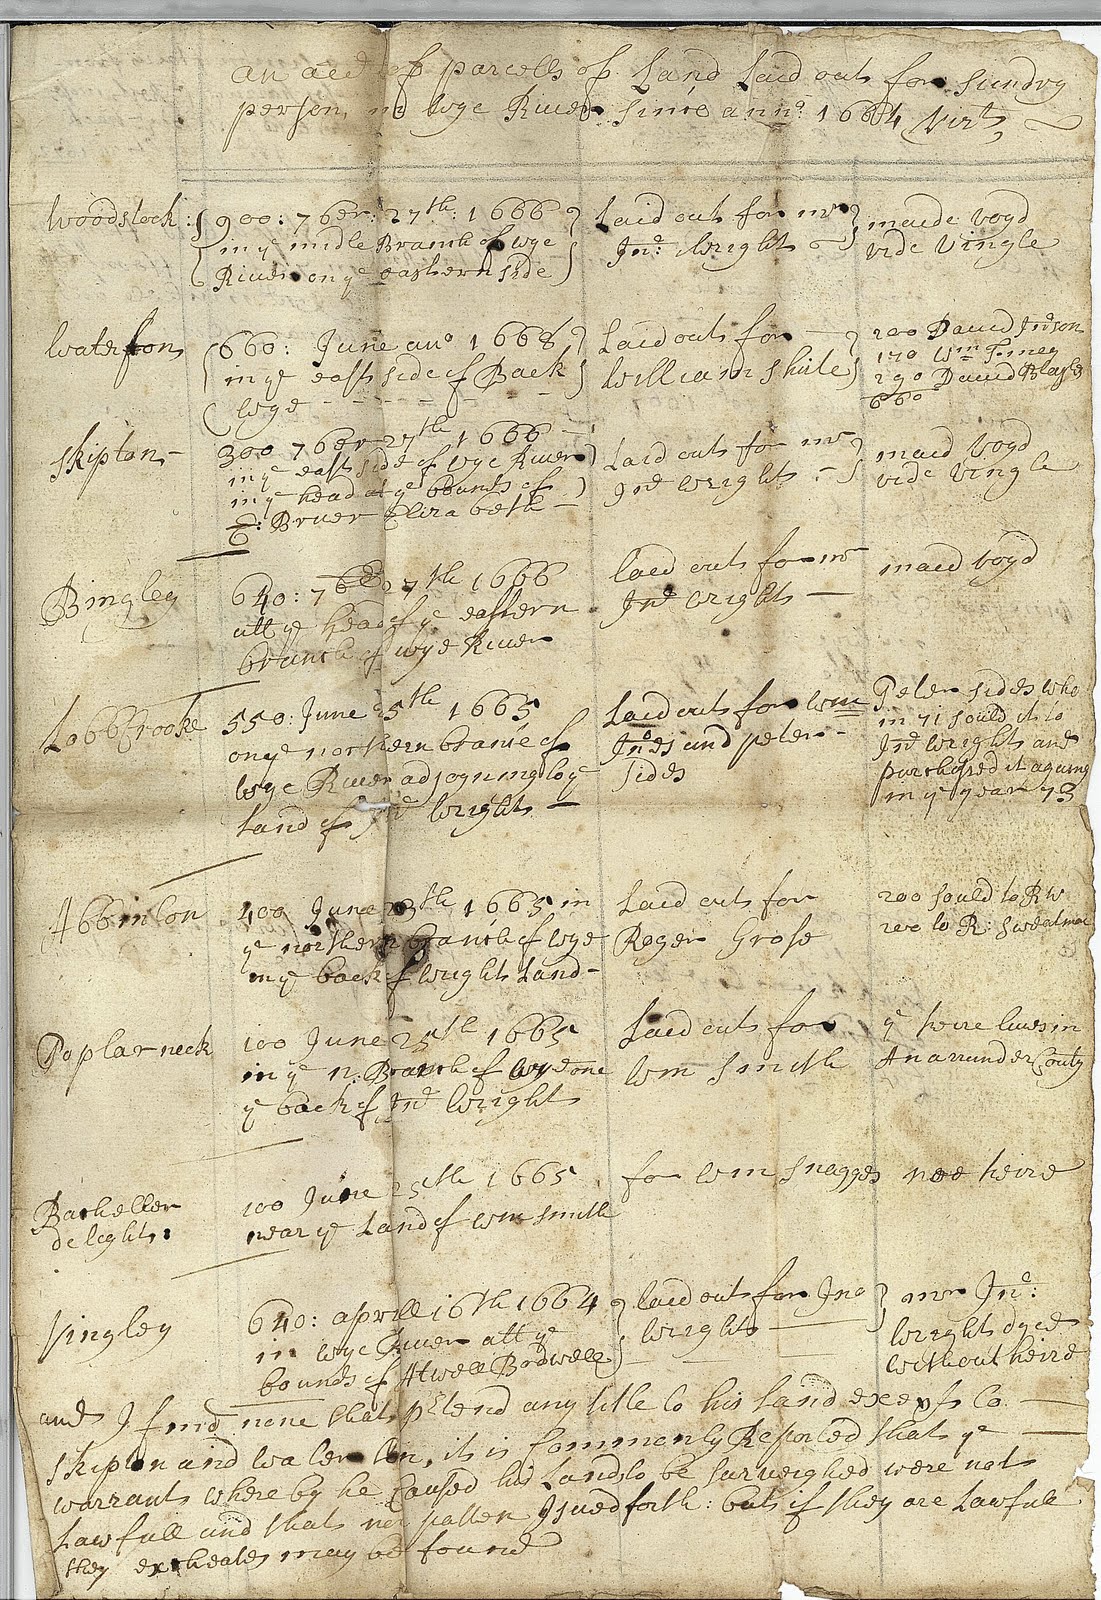 an acct of parcells of Land Laid out for sundry
person in wye River since anno 1664 Vizt
Woodstock: 900: 7ber: 27th: 1666 Laid out for mr maide voyd
in ye midle Branch of wye Jno: Wright vide Vingle
River on ye eastern side
Waterton 660: June ano 1668 Laid out for 200 David Jnoson
in ye east side of Back William Shile 170 Wm Finney
wye 290 David Blake
660
Skipton 300 7ber 27th 1666 Laid out for mr maid voyd
in ye east side of wye River Jno Wright vide Vingle
in ye head at ye bounds of
Bruer Elizabeth
Bingley 640: 7ber 27th 1666 laid out for mr maid voyd
att ye head of ye eastern Jno Wright
branch of wye River
Lobb Crooke 550: June 25th 1665 Laid out for Wm Peter sides who
on ye northern brance of Jnoes and peter in 71 sould it to
wye River adjoyning to ye sides Jno Wright and
Land of Jno Wright purchased it againe
in ye year 73
Abbinton 400 June 25th 1665 in Laid out for 200 sould to RW
ye northern branch of wye Roger Grose 200 to R: Sweatnae
in ye back of Wright Land
Poplar neck 100 June 25th 1665 Laid out for ye heire lives in
in ye n: Branch of wye one Wm Smith Anarunder County
ye back of Jno Wright
Bacheller 100 June 25th 1665 for Wm Snagges noe heire
delight: near ye Land of Wm Smith
Vingley 640: aprill 16th 1664 laid out for Jno mr Jno:
in wye River att ye Wright Wright dyed
bounds of Atwell Bodwell without heire
and I find none that ptend any title to his Land except to
Skipton and Waterton, it is Commonly Reported that ye
warrants where by he Caused his Lands to be surveighed were not
Lawfull and that no patten Isued forth: but if they are Lawfull
they excheates may be found